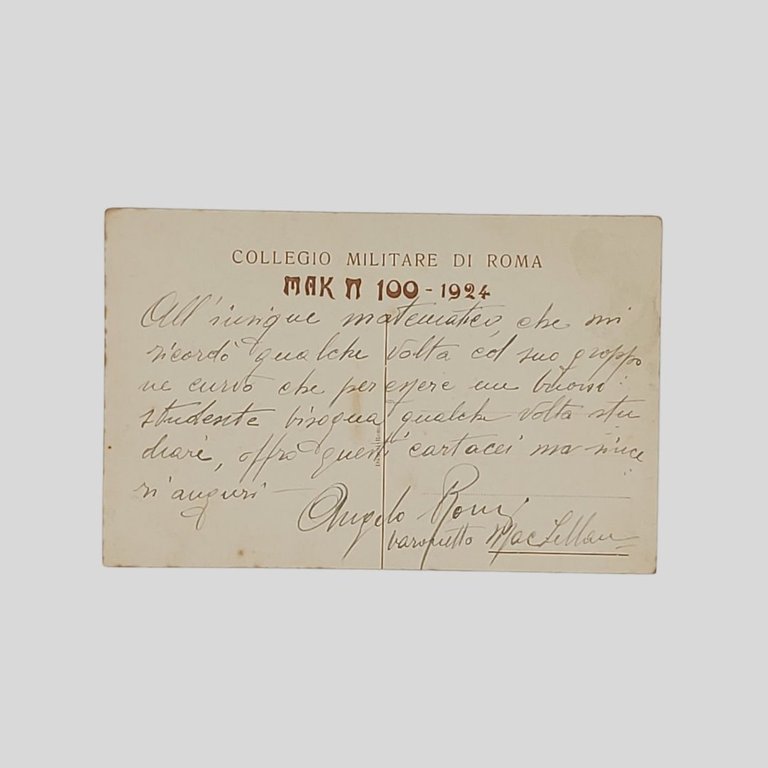 COLLEGIO MILITARE DI ROMA
MAK π 100 - 1924
All'insigne matematico, che mi
ricordò qualche volta col suo groppo
ne curvo che per essere un buon
studente bisogna qualche volta stu
diare, offro questi cartacei ma since
ri auguri -
Angelo
baronetto MacLellan